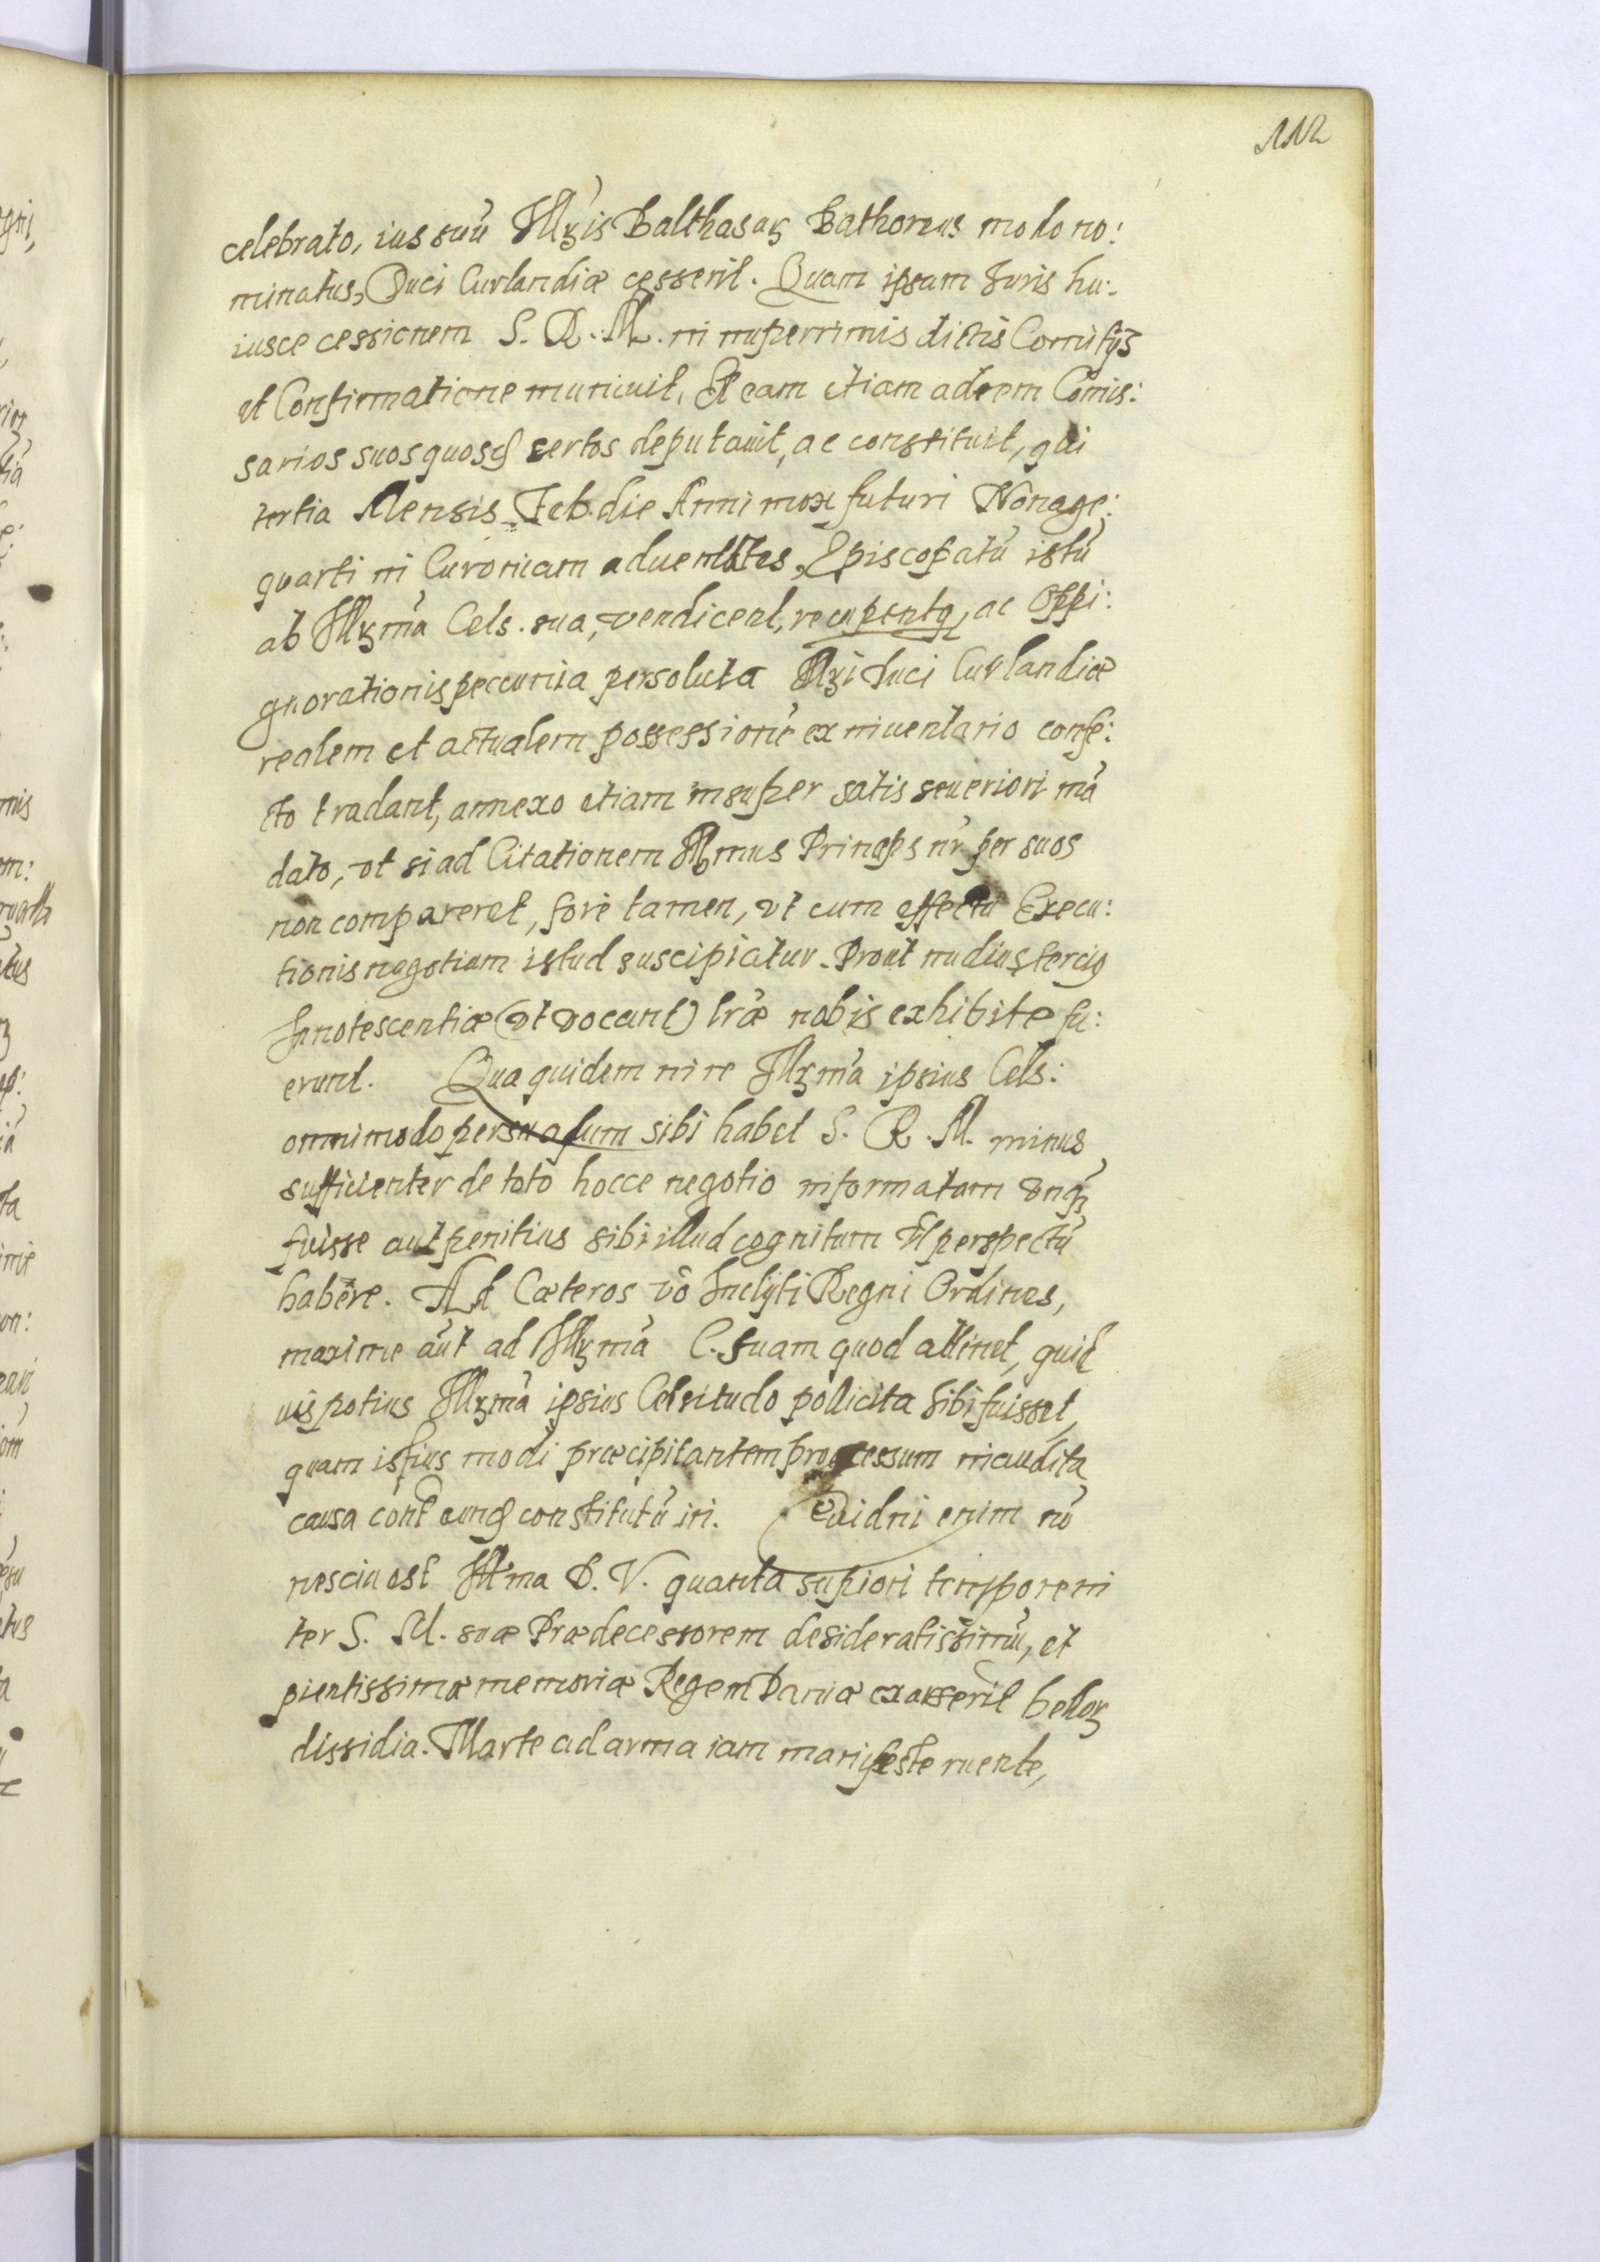 112
celebrato, ius suũ Illr̃is Balthasar Bathoreus modo no:
minatus, Duci Curlandiæ cesserit. Quam ipsam Iuris hu:
iusce cessionem S. R. M. in nuperrimis dictis Comitijs
et Confirmatione muniuit, Et eam etiam ad rem Comis:
sarios suos quosq3 certos deputauit, ac constituit, qui
tertia Mensis Feb. die Anni mox futuri Nonage:
quarti in Curoniam aduentates, Episcopatũ istũ
ab Illr̃ma Cels. sua, vendicent, recuperentq, ac Oppi:
gnorationis peccunia persoluta Illr̃i Duci Curlandiæ
realem et actualem possessionẽ ex inuentario confe:
cto tradant, annexo etiam insuper satis seueriori mã
dato, vt si ad Citationem Illmus Princeps nr̃ per suos
non compareret, fore tamen, vt cum effectu Execu:
tionis negotium istud suscipiatur. Prout nudiustercius
Innotescentiæ (vt vocant) lr̃æ nobis exhibitæ fu:
erunt. Qua quidem in re Illr̃ma ipsius Cels:
omnimodo persuasum sibi habet S. R. M. minus
sufficienter de toto hocce negotio informatam vnq̃
fuisse aut penitius sibi illud cognitum et perspectũ
habere. Ad Cæteros vō Inclyti Regni Ordines,
maxime aũt ad Illr̃mã C. suam quod attinet, quid
uis potius Illr̃ma ipsius Celsitudo pollicita sibi fuisset,
quam istius modi præcipitantem processum inaudita
causa cont eũnd constitutũ iri. enim nõ
nesciu est Illma D. V. quanta supiori tempore in
ter S. M. suæ Prædecessorem desideratissimũ, et
pientissimæ memoriæ Regem Daniæ exarserit bellor
dissidia. Marte ad arma iam manifeste ruente,